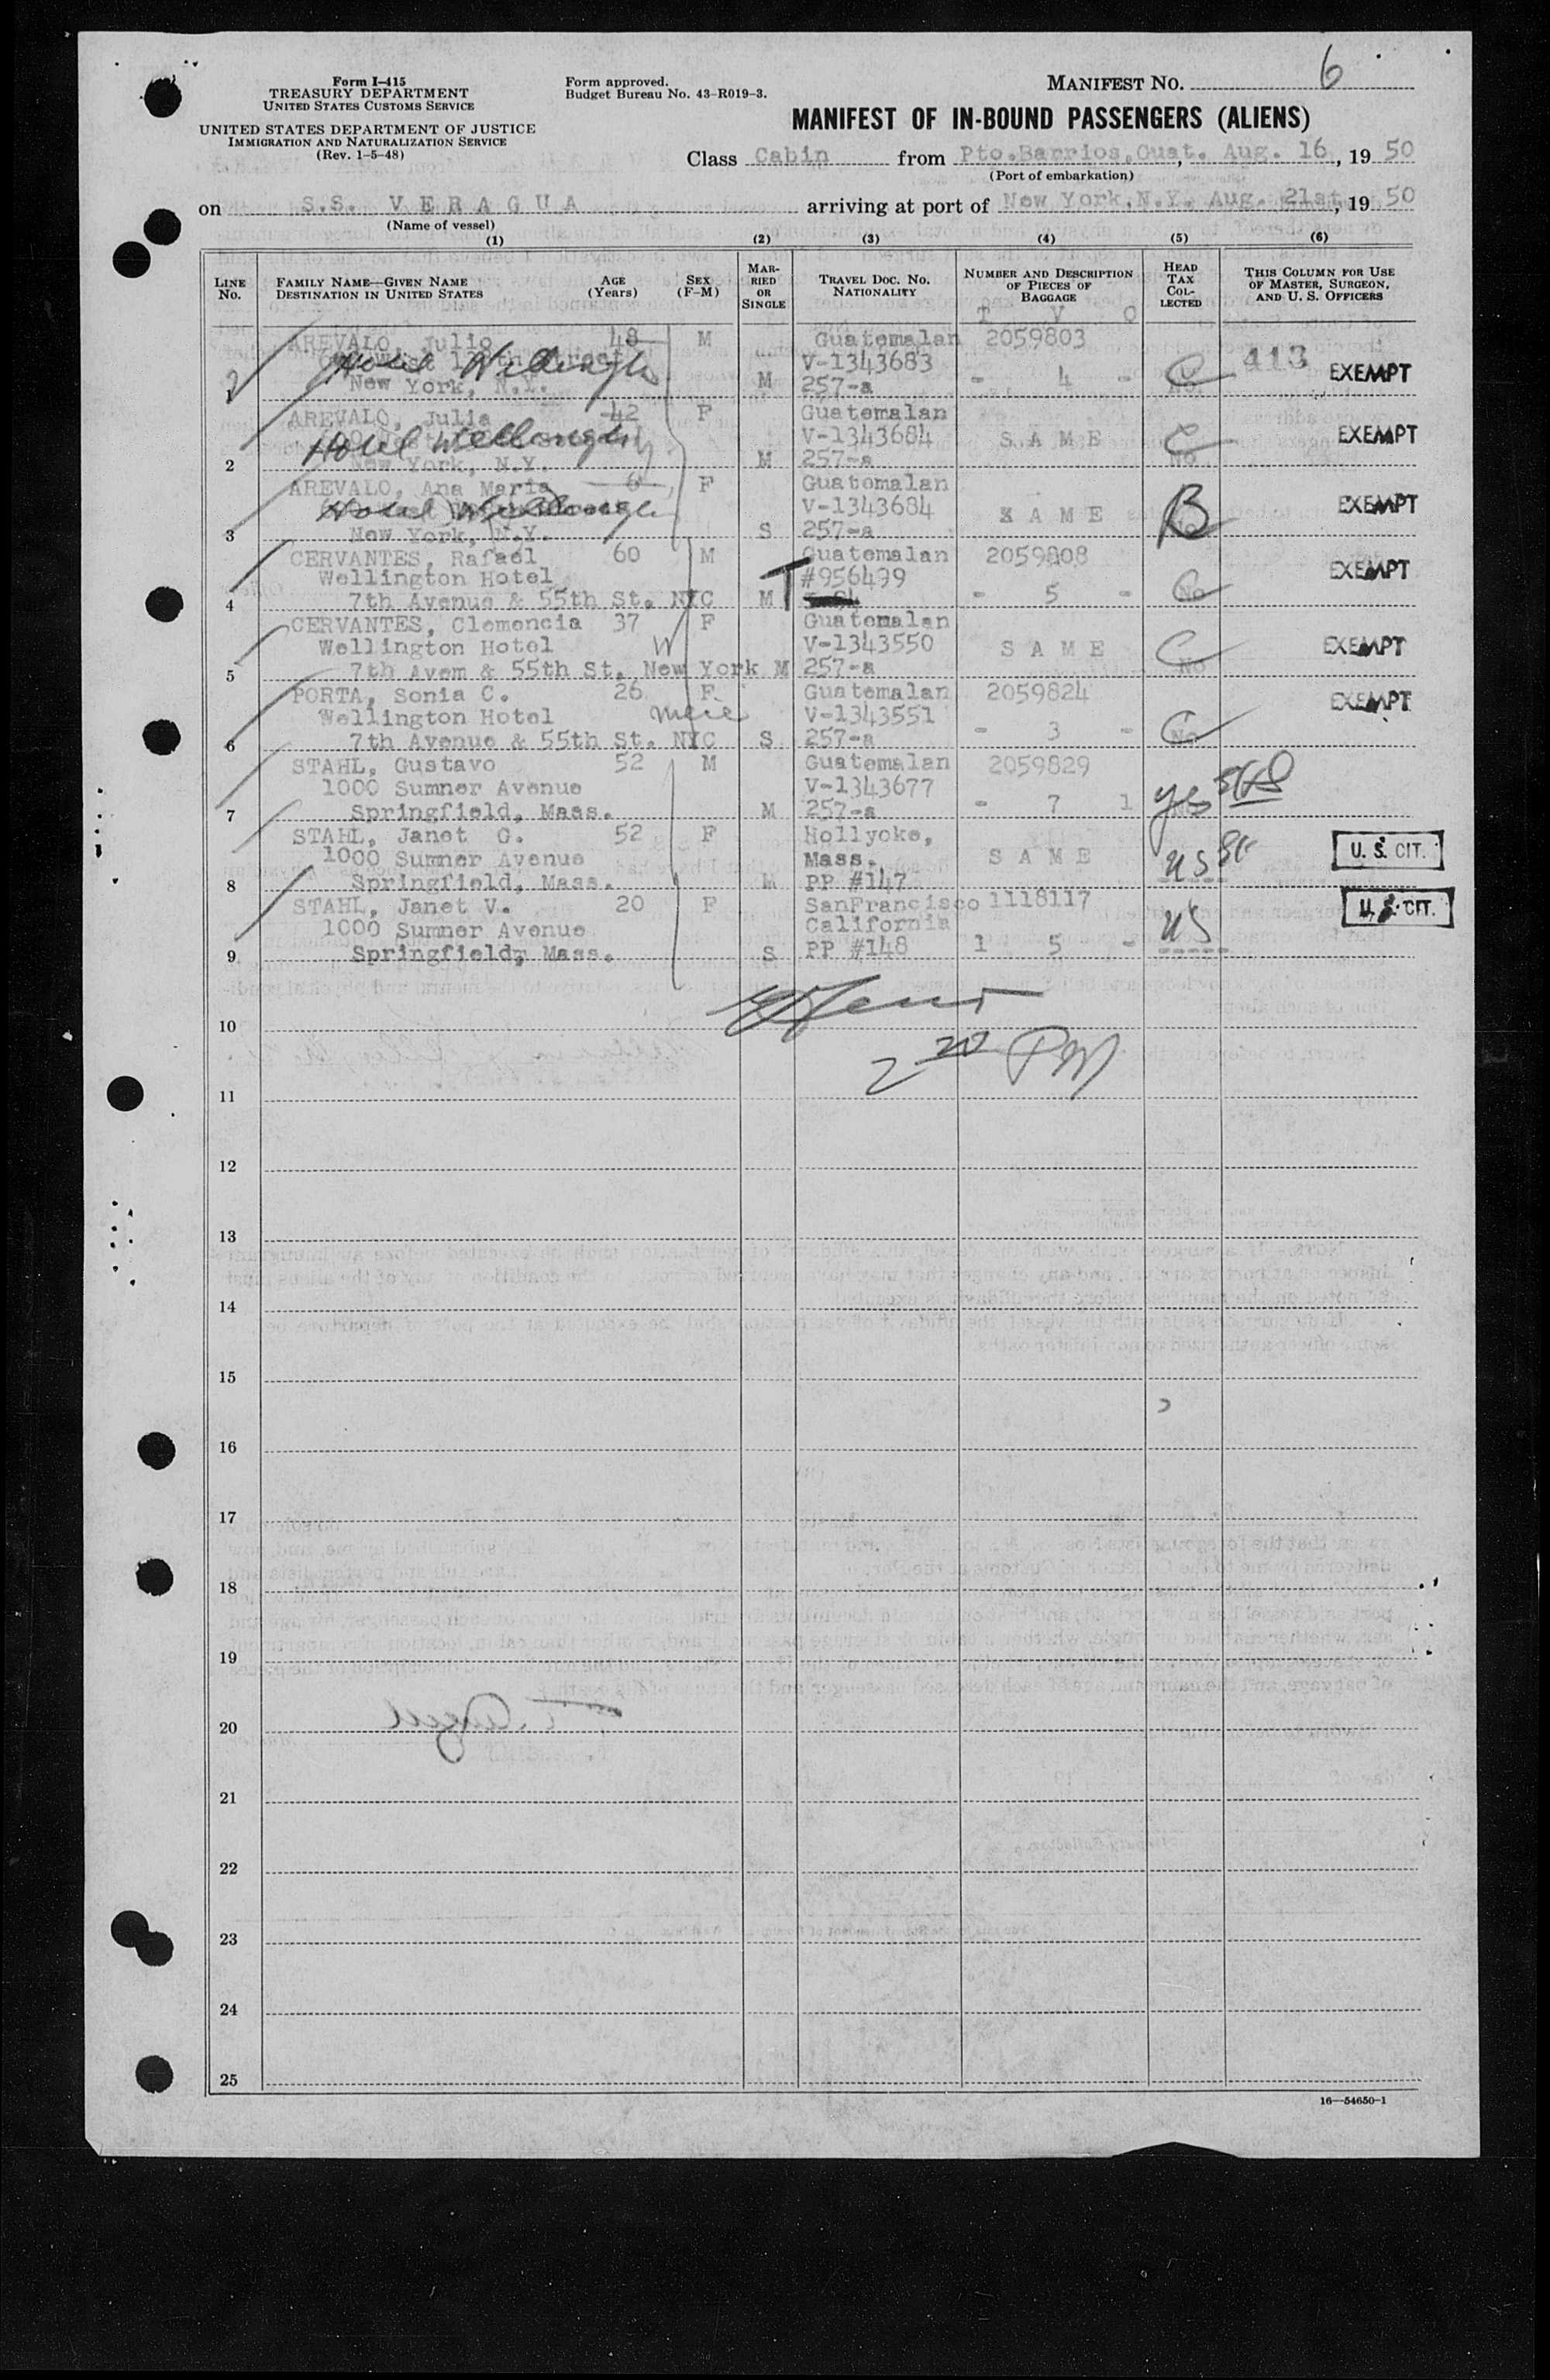 Form I-415
TREASURY DEPARTMENT
UNITED STATES CUSTOMS SERVICE
UNITED STATES DEPARTMENT OF JUSTICE
IMMIGRATION AND NATURALIZATION SERVICE
(Rev. 1-5-48)
Form approved.
Budget Bureau No. 43-R019-3.
MANIFEST NO. 6
MANIFEST OF IN-BOUND PASSENGERS (ALIENS)
Class Cabin from Pto.Barrios,Guat. Aug. 16, 19 50
(Port of embarkation)
on S.S. VERAGUA arriving at port of New York,N.Y. Aug. 21st, 19 50
(Name of vessel)
(1) (2) (3) (4) (5) (6)
LINE NO.
FAMILY NAME—GIVEN NAME DESTINATION IN UNITED STATES
AGE (Years)
SEX (F-M)
MARRIED OR SINGLE
TRAVEL DOC. NO. NATIONALITY
NUMBER AND DESCRIPTION OF PIECES OF BAGGAGE
HEAD TAX COLLECTED
THIS COLUMN FOR USE OF MASTER, SURGEON, AND U. S. OFFICERS
T V O
AREVALO, Julio 48 M Guatemalan 2059803
Hotel V-1343683 413 EXEMPT
1 New York, N.Y. M 257-a - 4 - C No
AREVALO, Julia 42 F Guatemalan
Hotel V-1343684 SAME C EXEMPT
2 New York, N.Y. M 257-a No
AREVALO, Ana Maria 6 F Guatemalan
Hotel V-1343684 SAME B EXEMPT
3 New York, N.Y. S 257-a No
CERVANTES, Rafael 60 M Guatemalan 2059808
Wellington Hotel T #956499 EXEMPT
4 7th Avenue & 55th St. NYC M - 5 - C No
CERVANTES, Clemencia 37 F Guatemalan
Wellington Hotel W V-1343550 SAME C EXEMPT
5 7th Avem & 55th St. New York M 257-a No
PORTA, Sonia C. 26 F Guatemalan 2059824 EXEMPT
Wellington Hotel V-1343551
6 7th Avenue & 55th St. NYC S 257-a - 3 - C No
STAHL, Gustavo 52 M Guatemalan 2059829
1000 Sumner Avenue V-1343677 yes
7 Springfield, Mass. M 257-a - 7 1 No
STAHL, Janet G. 52 F Hollyoke,
1000 Sumner Avenue Mass. SAME US U. S. CIT.
8 Springfield, Mass. M PP #147
STAHL, Janet V. 20 F SanFrancisco 1118117
1000 Sumner Avenue California US U. S. CIT.
9 Springfield, Mass. S PP #148 1 5 -
10
2 20 PM
11
12
13
14
15
16
17
18
19
20
21
22
23
24
25
16—54650-1